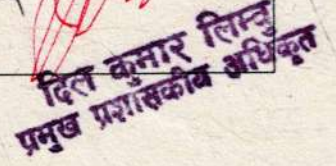 दिल कुमार लिम्बु
प्रमुख प्रशासकीय अधिकृत